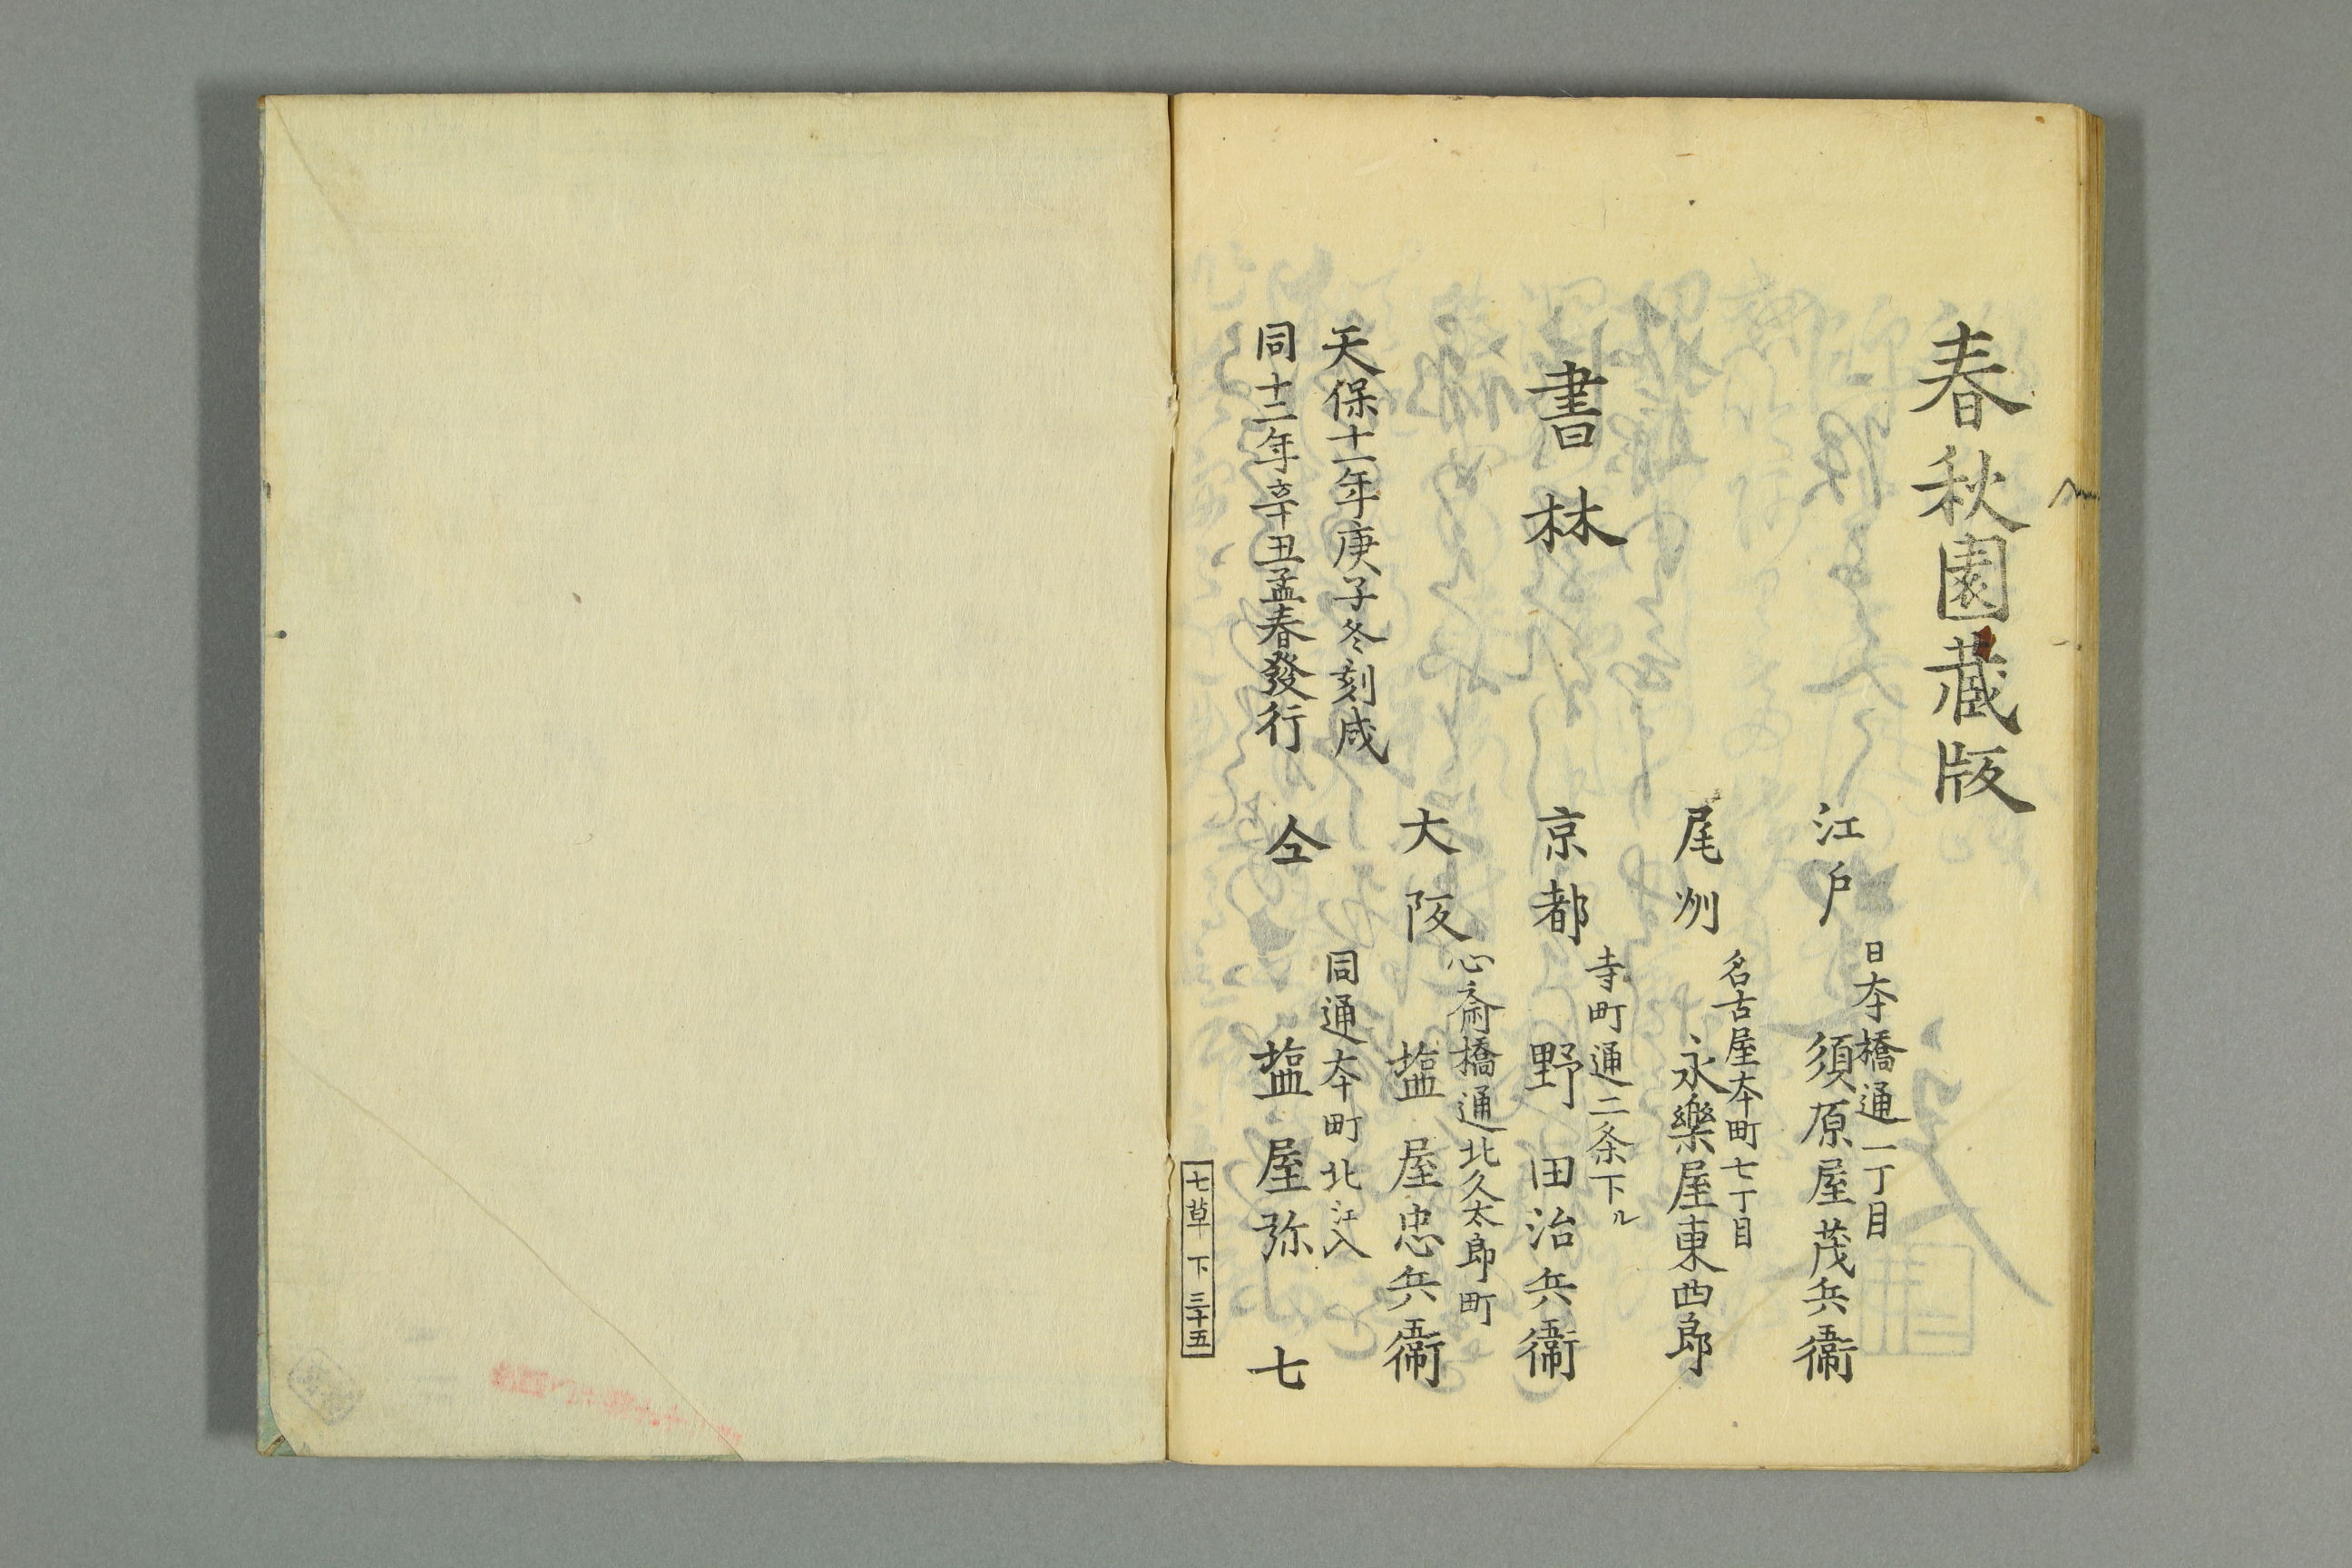 春秋園藏版
江戸
日本橋通一丁目
須原屋茂兵衞
尾州
名古屋本町七丁目
永樂屋東四郎
書林
京都
寺町通二条下ル
野田治兵衞
大阪
心斎橋通北久太郎町
塩屋忠兵衞
天保十一年庚子冬刻成
同十二年辛丑孟春發行
仝
同通本町北江入
塩屋弥七
七草 下 三十五